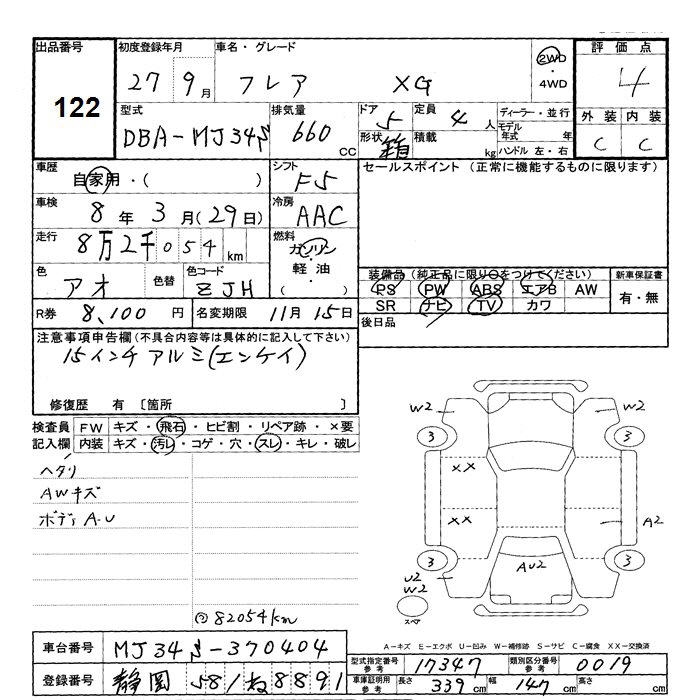 出品番号
122
初度登録年月
27 9月
車名・グレード
フレア XG
2WD
・
4WD
評価点
4
型式
DBA-MJ34S
排気量
660 cc
ドア
5
形状
箱
定員
4 人
積載
kg
ディーラー・並行
モデル
年式 年
ハンドル 左・右
外装 内装
C C
車歴
自家用・( )
シフト
F5
セールスポイント (正常に機能するものに限ります)
車検
8年 3月(29日)
冷房
AAC
走行
8万2千054km
燃料
ガソリン
・
軽油
・
( )
色
アオ
色替
色コード
ZJH
装備品(純正品に限り○をつけてください)
新車保証書
PS PW ABS エアB AW
SR ナビ TV カワ
有・無
R券 8,100円
名変期限 11月15日
後日品
注意事項申告欄(不具合内容等は具体的に記入して下さい)
15インチアルミ(エンケイ)
修復歴 有 [箇所 ]
検査員
記入欄
FW キズ・飛石・ヒビ割・リペア跡・×要
内装 キズ・汚レ・コゲ・穴・スレ・キレ・破レ
ヘタリ
AWキズ
ボディA.U
82054km
W2 W2
3 3
XX
XX
A2
3 3
U2
W2
AU2
スペア
A-キズ E-エクボ U-凹み W-補修跡 S-サビ C-腐食 XX-交換済
車台番号 MJ34S-370404
型式指定番号
参考
17347
類別区分番号
参考
0019
登録番号 静岡 581 ね 8891
車庫証明用
参考
長さ 339cm 幅 147cm 高さ cm